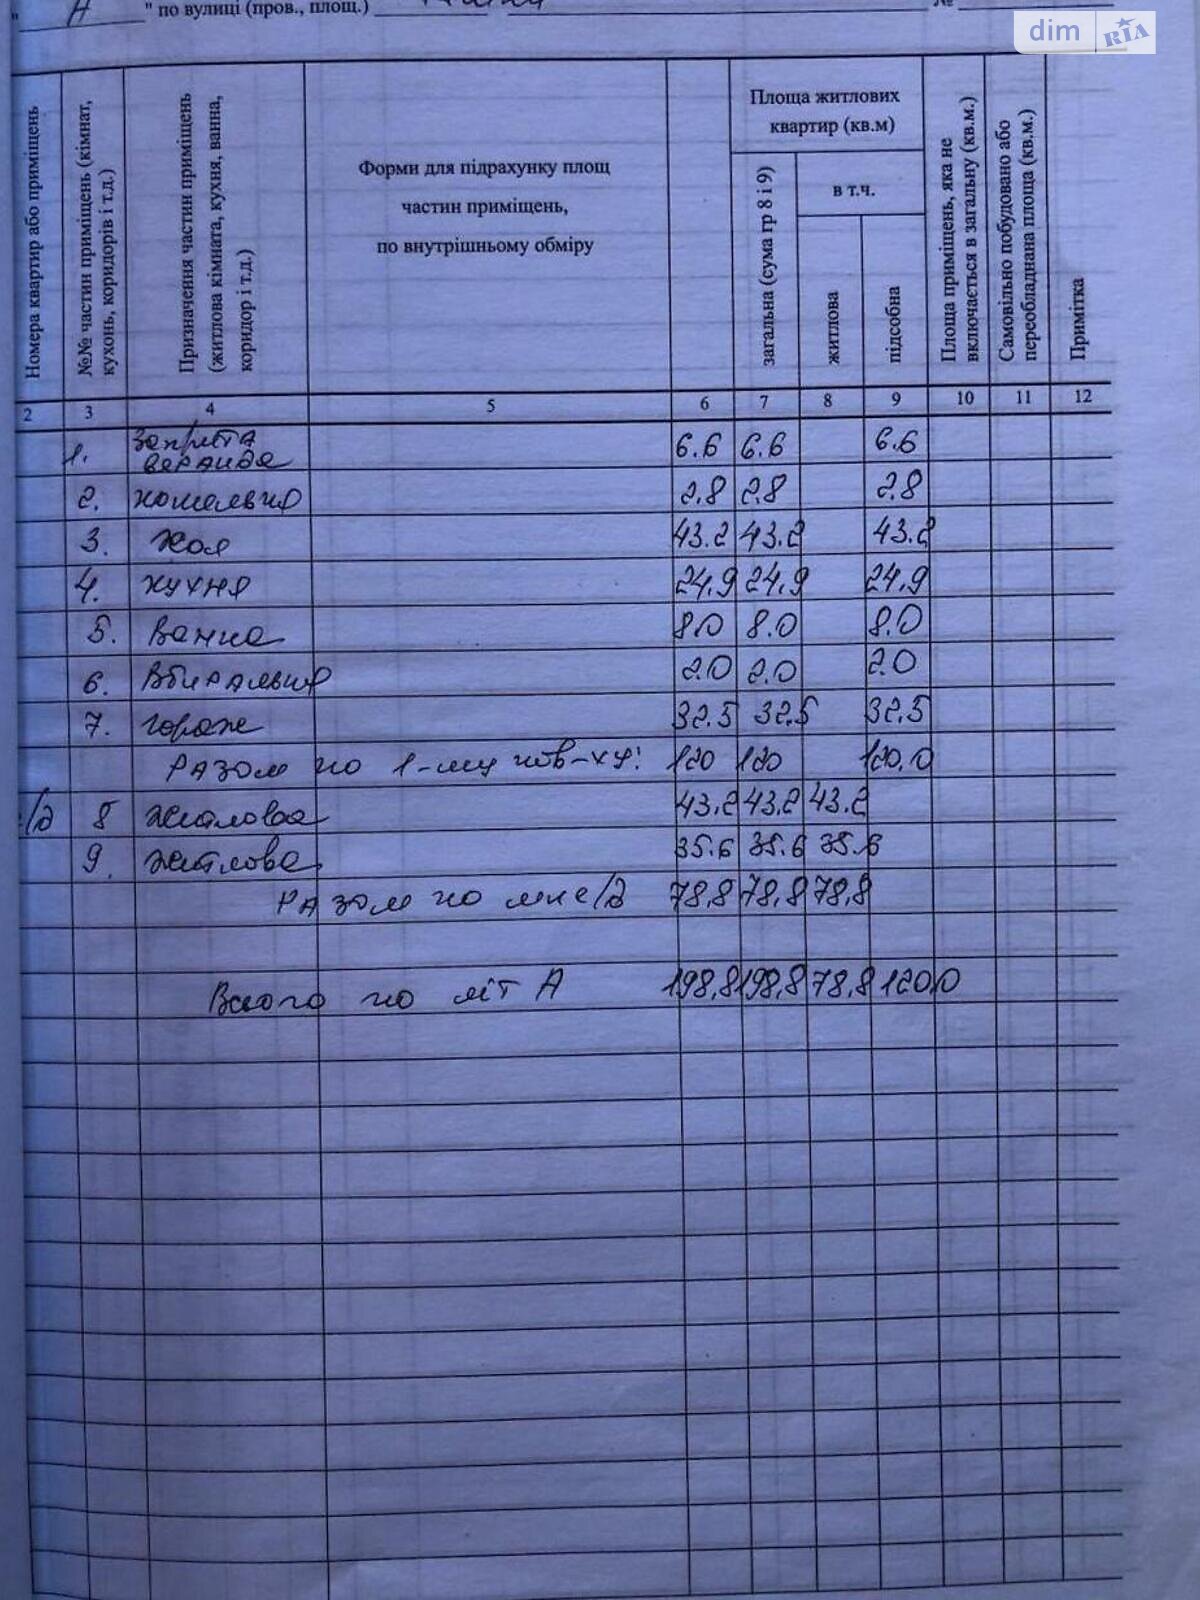 " А " по вулиці (пров., площ.)
№
dim RIA
Номера квартир або приміщень
№№ частин приміщень (кімнат,
кухонь, коридорів і т.д.)
Призначення частин приміщень
(житлова кімната, кухня, ванна,
коридор і т.д.)
Форми для підрахунку площ
частин приміщень,
по внутрішньому обміру
Площа житлових
квартир (кв.м)
загальна (сума гр 8 і 9)
в т.ч.
житлова
підсобна
Площа приміщень, яка не
включається в загальну (кв.м.)
Самовільно побудовано або
переобладнана площа (кв.м.)
Примітка
2 3 4 5 6 7 8 9 10 11 12
1. Закрита веранда 6.6 6.6 6.6
2. 2,8 2,8 2,8
3. Хол 43.2 43.2 43.2
4. Кухня 24,9 24,9 24,9
5. Ванна 8.0 8.0 8.0
6. Вбиральня 2.0 2.0 2.0
7. гараж 32.5 32,5 32,5
Разом по 1-му пов-ху: 120 120 120,0
8 Житлова 43.2 43.2 43.2
9. житлова 35.6 35.6 35.6
Разом по 78,8 78,8 78,8
Всього по літ А 198,8 198,8 78,8 120,0